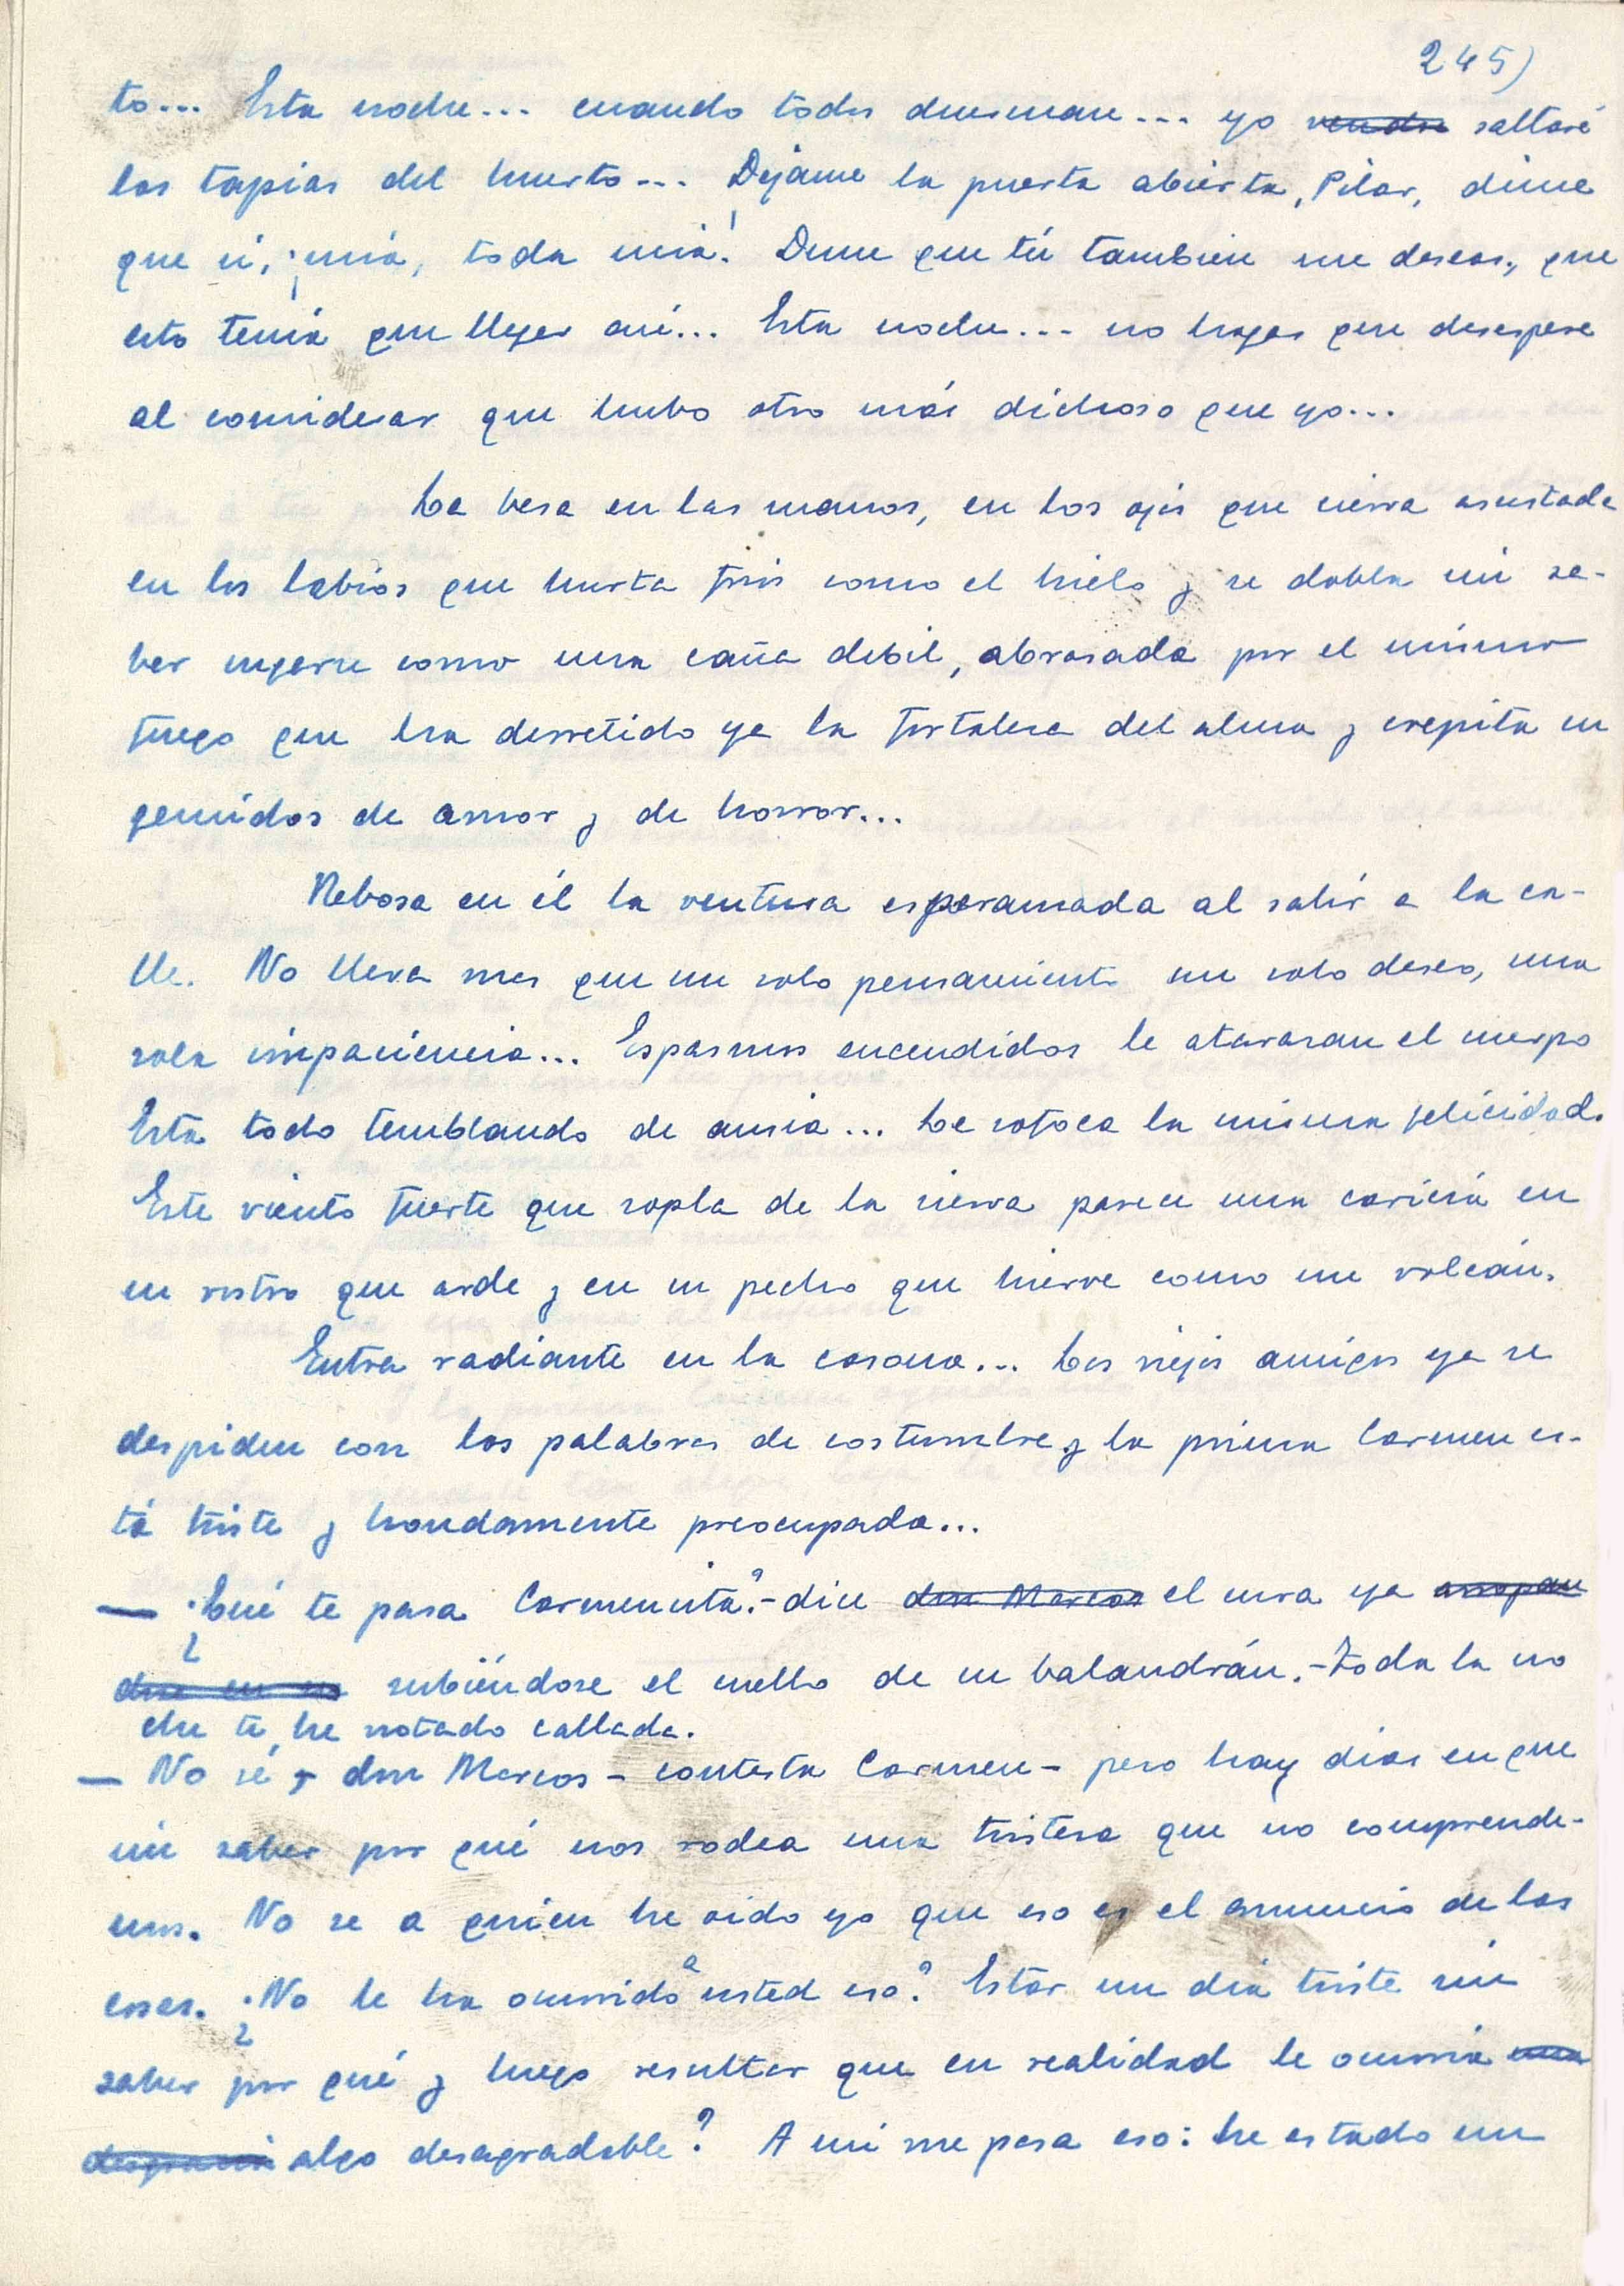 245)
to... Esta noche... cuando todos duerman... yo vendré saltaré
las tapias del huerto... Déjame la puerta abierta, Pilar, dime
que si, ¡mía, toda mía! Dime que tú tambien me deseas, que
esto tenía que llegar así... Esta noche... no hagas que desespere
al considerar que hubo otro más dichoso que yo...
La besa en las manos, en los ojos que cierra asustada
en los labios que hurta frios como el hielo y se dobla sin sa-
ber negarse como una caña debil, abrasada por el mismo
fuego que ha derretido ya la fortaleza del alma y crepita en
gemidos de amor y de horror...
Rebosa en él la ventura esperanzada al salir a la ca-
lle. No lleva mas que un solo pensamiento un solo deseo, una
sola impaciencia... Espasmos encendidos le atarazan el cuerpo
Está todo temblando de ansia... Le sofoca la misma felicidad.
Este viento fuerte que sopla de la sierra parece una caricia en
su rostro que arde y en su pecho que hierve como un volcán.
Entra radiante en la casona... Los viejos amigos ya se
despiden con las palabras de costumbre y la prima Carmen es-
tá triste y hondamente preocupada...
— ¿Qué te pasa Carmencita? - dice don Marcos el cura ya arropan
dose en su subiéndose el cuello de su balandrán. - Toda la no
che te he notado callada.
— No sé, don Marcos - contesta Carmen - pero hay dias en que
sin saber por qué nos rodea una tristeza que no comprende-
mos. No se a quien he oido yo que eso es el anuncio de las
cosas. ¿No le ha ocurrido a usted eso? Estar un día triste sin
saber por qué y luego resultar que en realidad le ocurría una
desgracia algo desagradable? A mi me pasa eso: he estado un